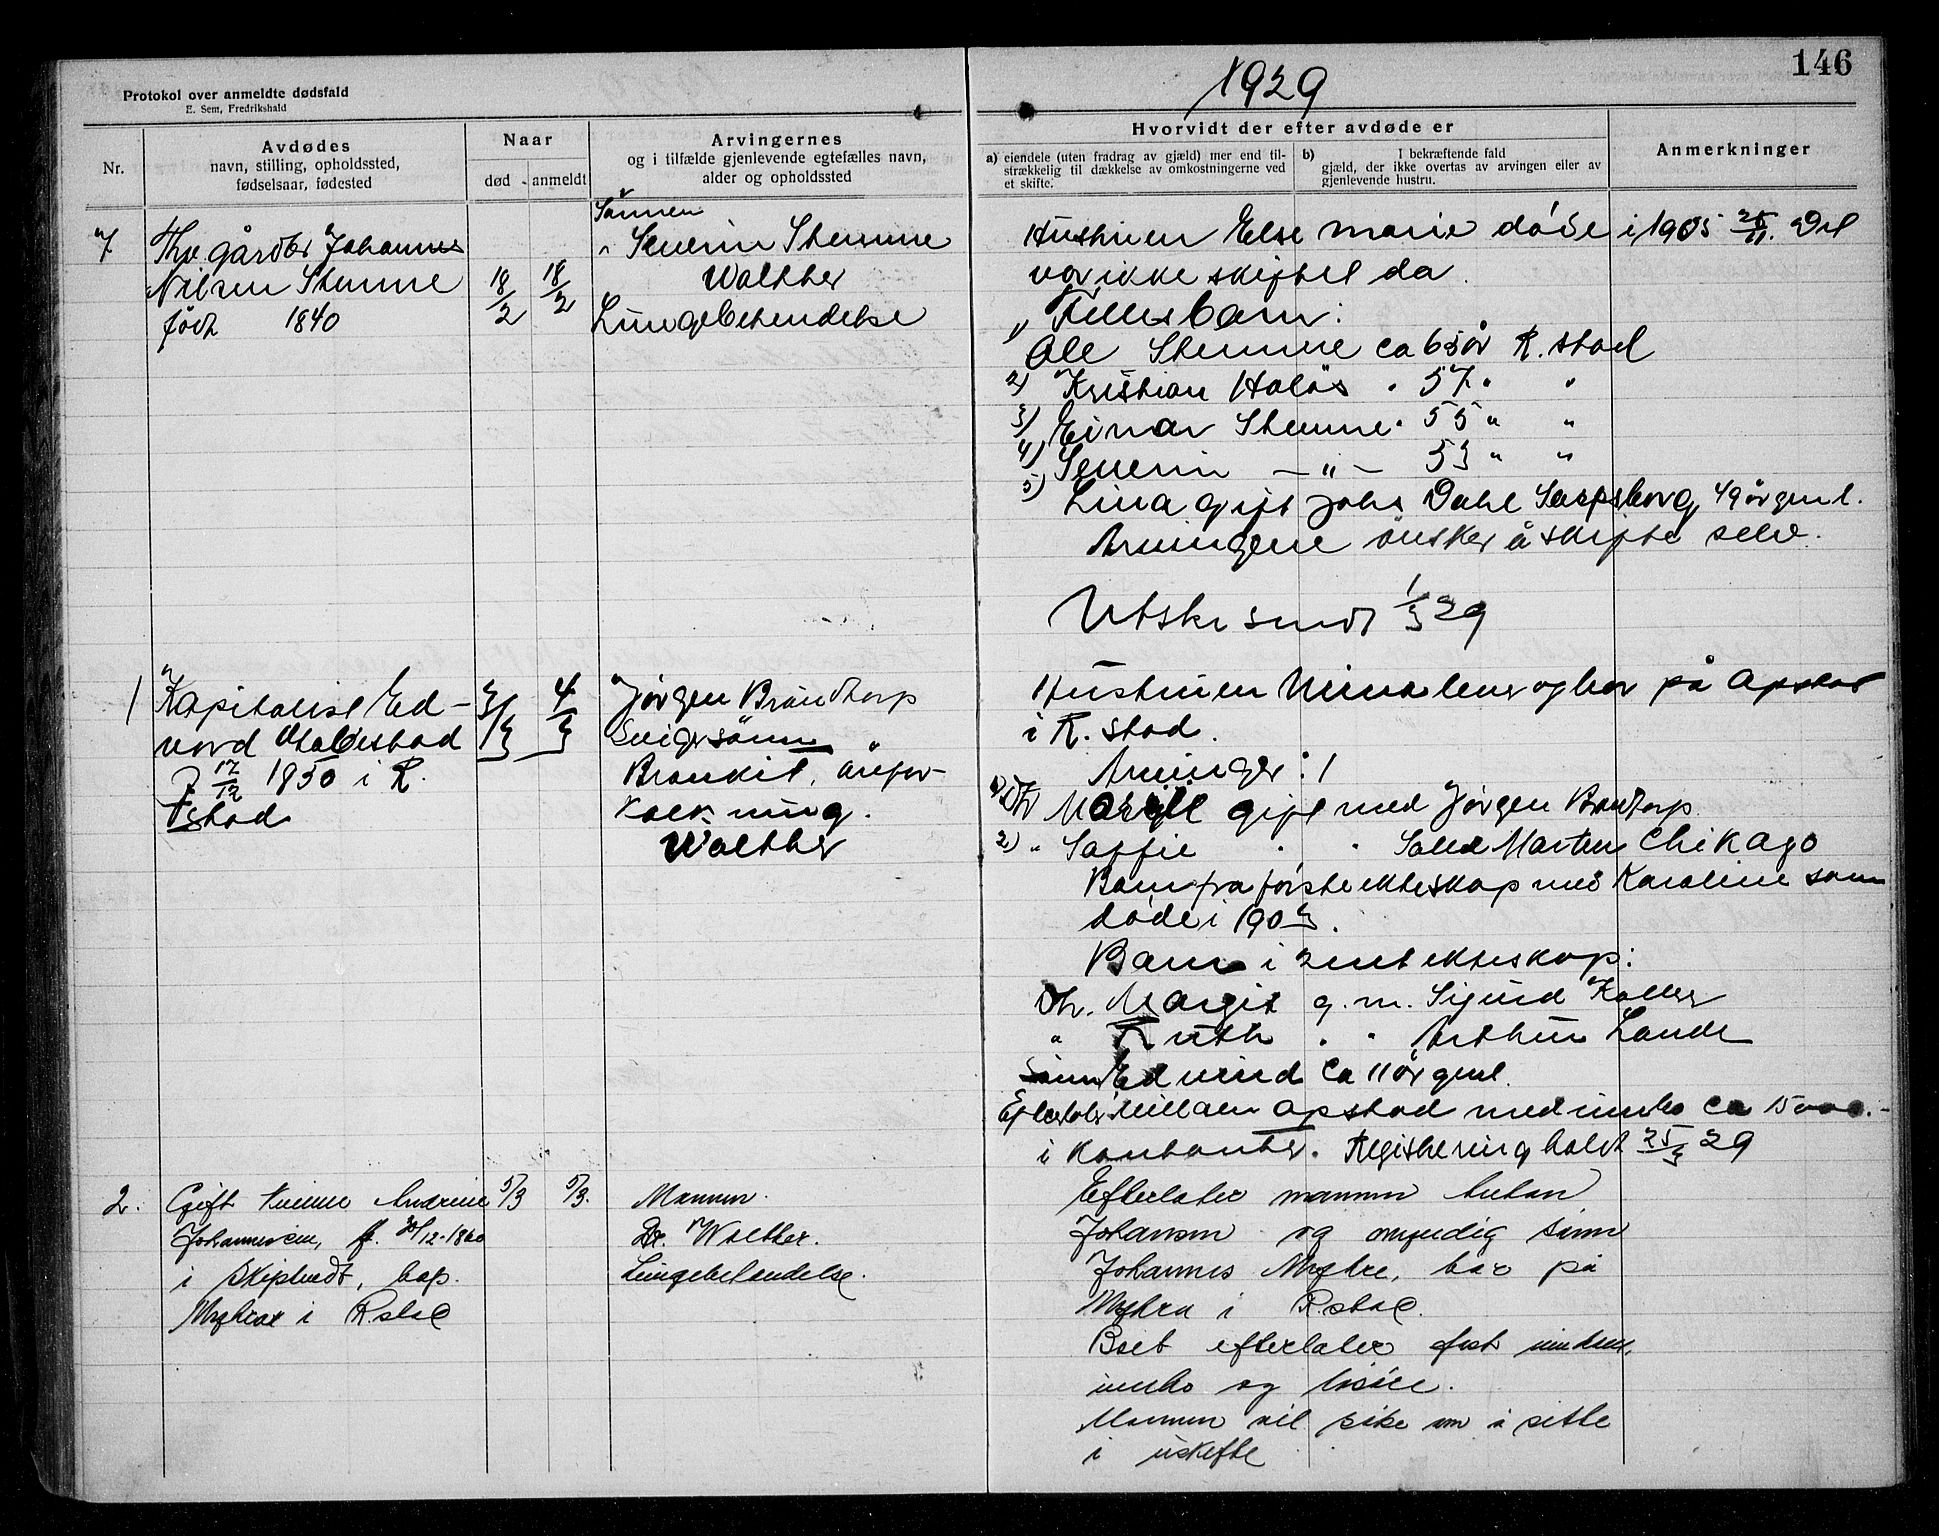 146
1929
Protokol over anmeldte dødsfald
E. Sem, Fredrikshald
Nr.
Avdødes
navn, stilling, opholdssted,
fødselsaar, fødested
Naar
død
anmeldt
Arvingernes
og i tilfælde gjenlevende egtefælles navn,
alder og opholdssted
Hvorvidt der efter avdøde er
a) eiendele (uten fradrag av gjæld) mer end til-
strækkelig til dækkelse av omkostningerne ved
et skifte.
b) I bekræftende fald
gjæld, der ikke overtas av arvingen eller av
gjenlevende hustru.
Anmerkninger
7
gårdbr Johannes
Nilsen Stumne
født 1840
18/2
18/2
Sönnen
Severin Stumne
Walther
Lungebetendelse
Hustruen Else Marie döde i 1905 25/11. Det
var ikke skiftet da.
Felles barn:
1) Ole Stumne ca 63 år R.stad
2) Kristian Holös " 57 " "
3) Einar Stumne " 55 " "
4) Severin — " — 53 " "
5) Lina gift Johs Dahl Sarpsborg 49 år gml.
Arvingene önsker å skifte selv.
Utskr sendt 1/3 29
1
Kapitalist Ed-
vard Stabestad
f. 17/12 1850 i R.
stad
3/3
4/3
Jörgen Brandtorp
Svigersönn "
Bronkit, årefor-
kalkning.
Walther
Hustruen Mina lever og bor på Opstad
i R.stad.
Arvinger:
1) Dtr gift med Jörgen Brandtorp
2) " Saffie " " Martens Chikago
Barn fra förste ekteskap med Karoline som
döde i 1903.
Barn i 2net ekteskap:
Dtr. Margit g.m. Sigurd Koller
" Ruth " " Arthur Lande
Sönn Edvind ca 11 år gml.
Efterlater villaen Opstad med innbo ca 15000.-
i kontanter. Registrering holdt 25/3 29
2.
Gift kvinne Andrine
Johannesen, f. 30/12-1860
i Skiptvedt, bop.
Myhrer i R.stad
5/3
5/3.
Mannen.
Dr. Walther.
Lungebetendelse.
Efterlater mannen Anton
Johansen og omyndig sönn
Johannes Myhre, bor på
Myhra i R.stad.
Boet efterlater fast eiendom,
innbo og lösöre.
Mannen vil söke om å sitte
i uskifte